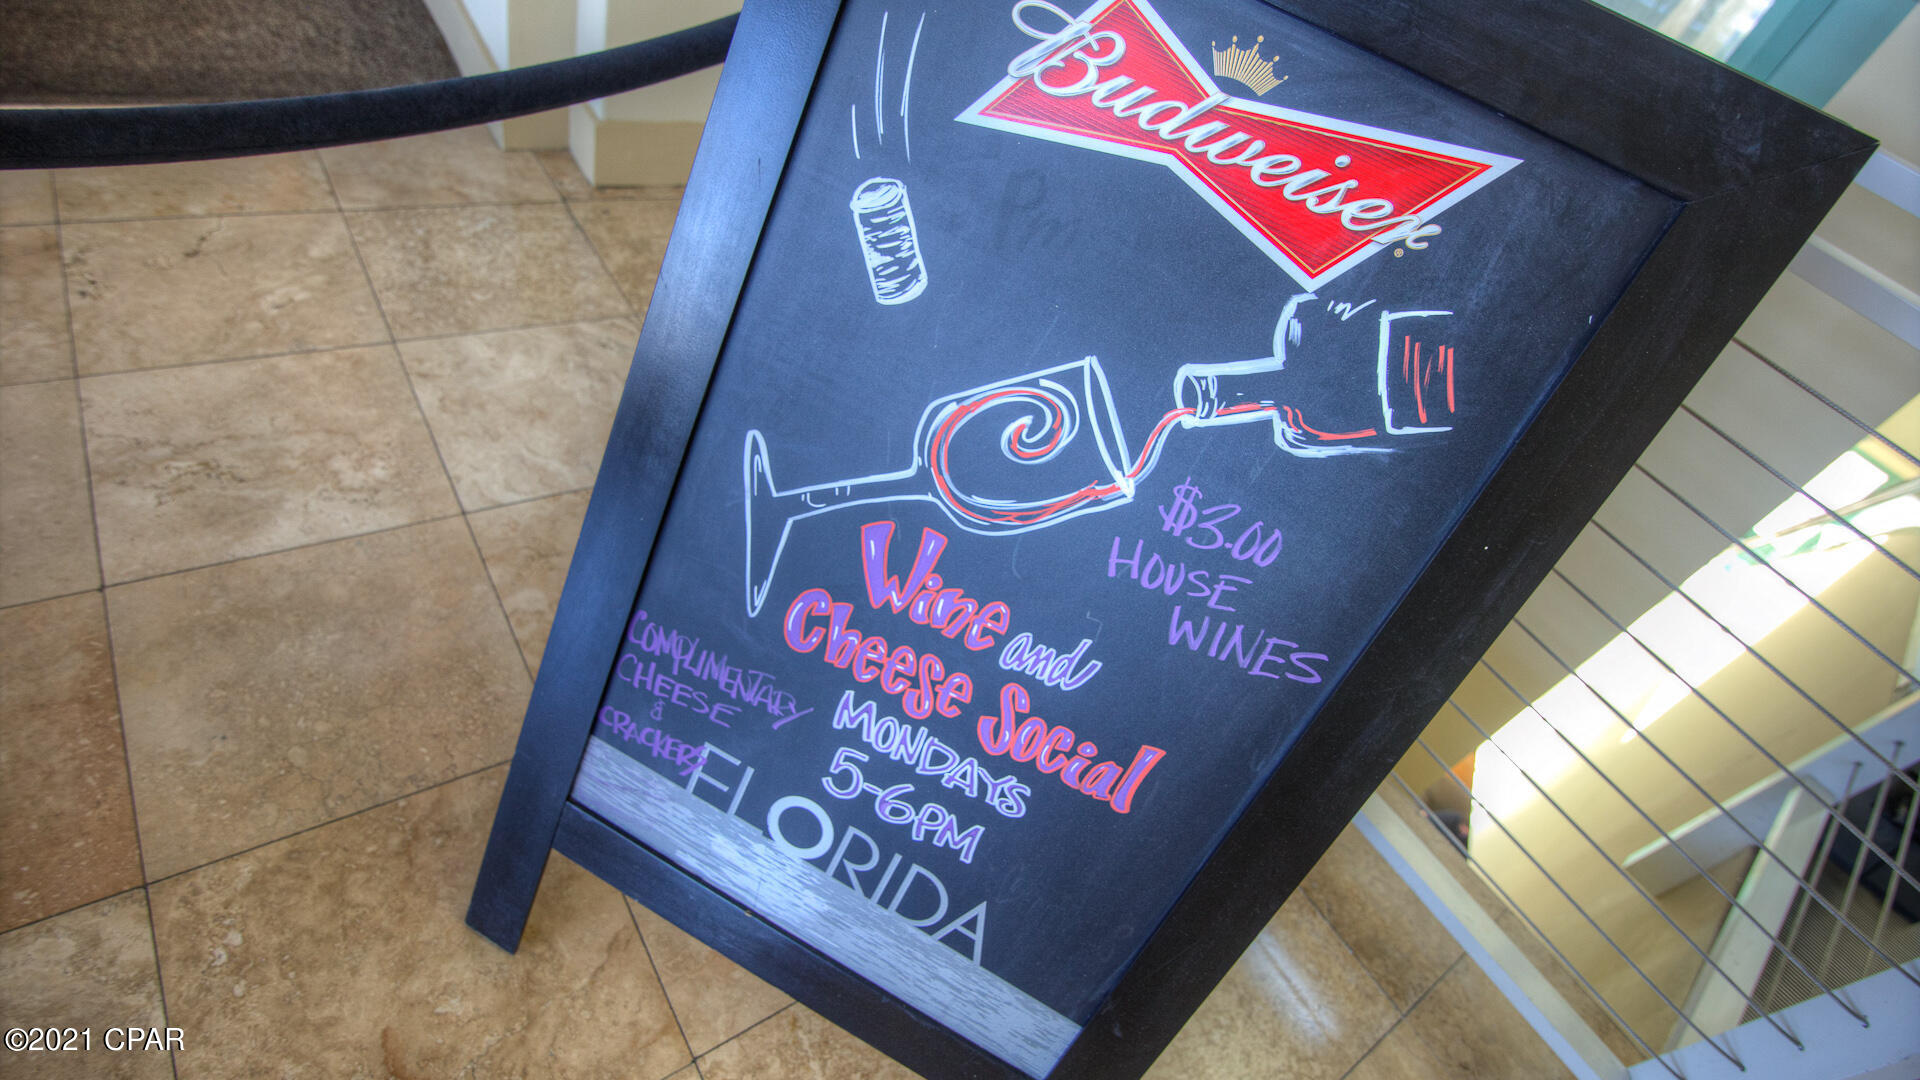 Budweiser
$3.00
HOUSE
WINES
Wine and
Cheese Social
MONDAYS
5-6PM
COMPLIMENTARY
CHEESE
&
CRACKERS
FLORIDA
©2021 CPAR